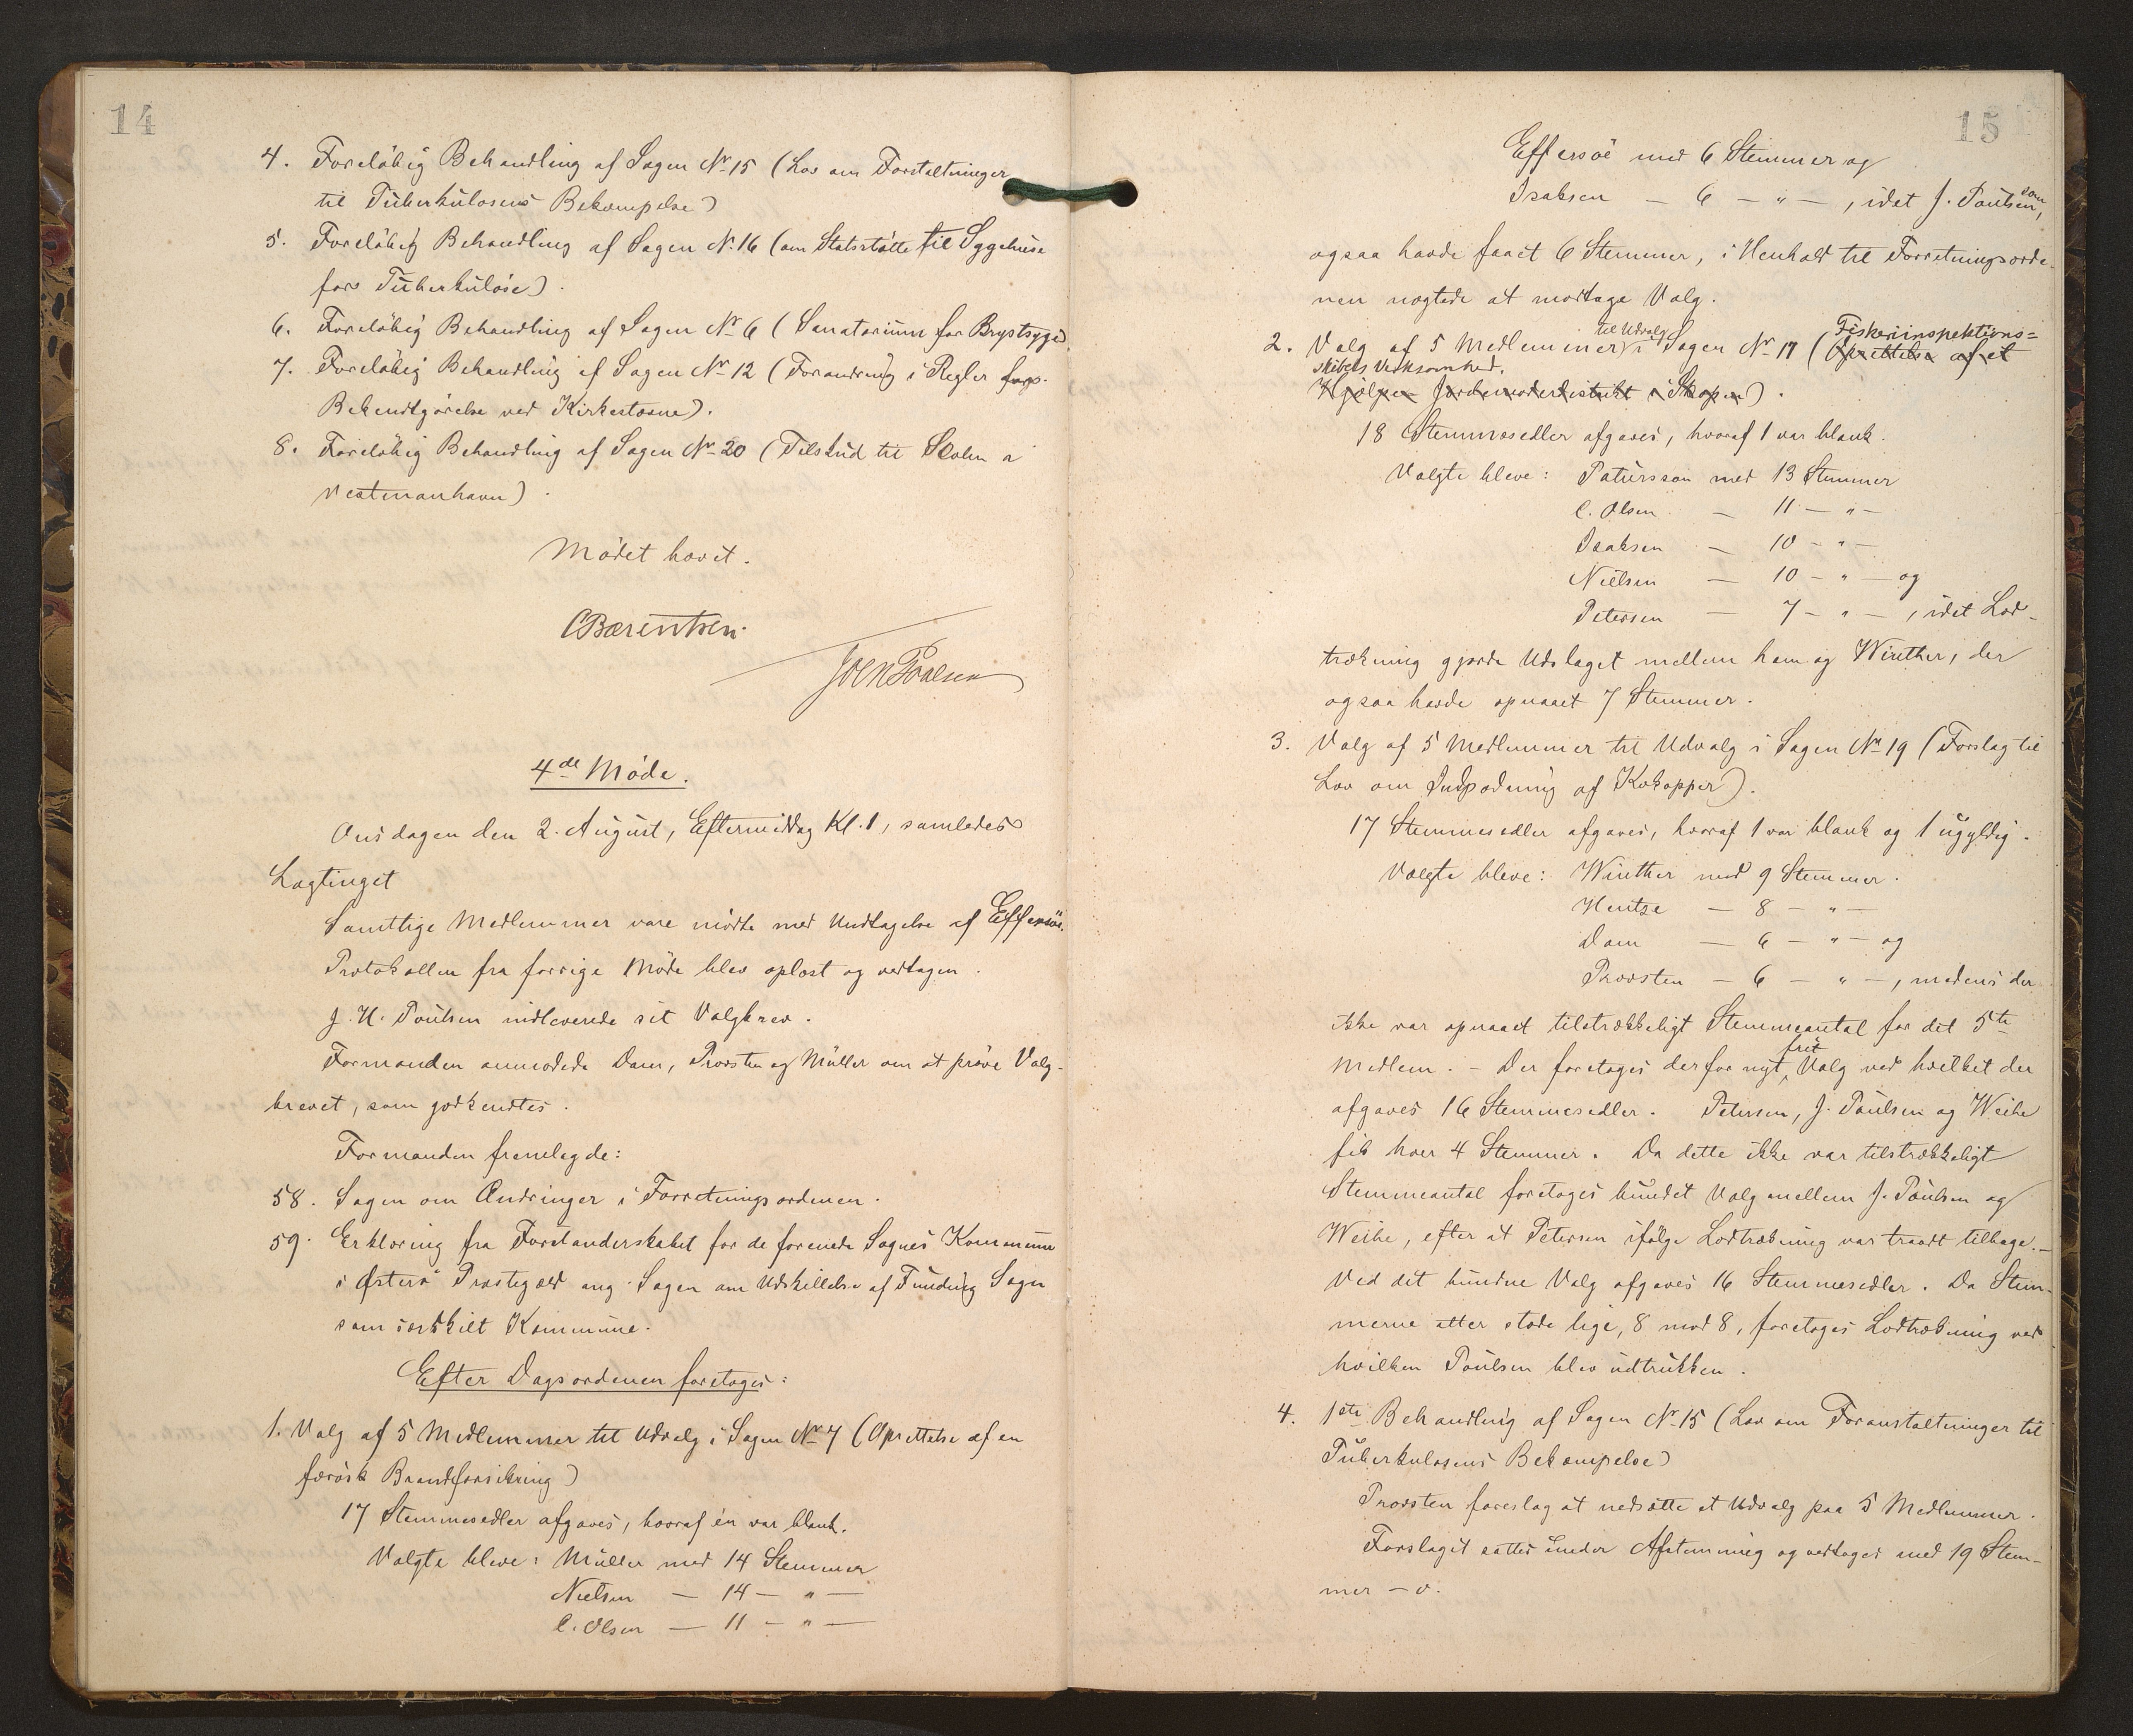 14
4. Foreløbig Behandling af Sagen Nr 15 (Lov om Forstaltninger
til Tuberkulosens Bekæmpelse)
5. Foreløbig Behandling af Sagen Nr. 16 (om Statsstøtte til Sygehuse
for Tuberkuløse).
6. Foreløbig Behandling af Sagen Nr 6 (Sanatorium for Brystsyge)
7. Foreløbig Behandling af Sagen Nr 12 (Forandring i Regler
Bekendtgørelse ved Kirkestævne).
8. Foreløbig Behandling af Sagen Nr 20 (Tilskud til Skolen a
Vestmanhavn).
Mødet hævet.
CBærentsen.
Joen Poulsen
4de Møde.
Onsdagen den 2. August, Eftermiddag Kl. 1, samledes
Lagtinget
Samtlige Medlemmer vare mødte med Undtagelse af Effersøe.
Protokollen fra forrige Møde blev oplæst og vedtagen.
J. H. Poulsen indleverede sit Valgbrev.
Formanden anmodede Dam, Provsten og Müller om at prøve Valg-
brevet, som godkendtes.
Formanden fremlagde:
58. Sagen om Ændringer i Forretningsordenen.
59. Erklæring fra Forstanderskabet for de forenede Sognes Kommune
i Østerø Præstegæld ang. Sagen om Udskillelse af Funding Sogn
som særskilt Kommune.
Efter Dagsordenen foretoges:
1. Valg af 5 Medlemmer til Udvalg i Sagen Nr 7 (Oprettelse af en
færøsk Brandforsikring)
17 Stemmesedler afgaves, hvoraf én var blank.
Valgte bleve: Müller med 14 Stemmer
Nielsen — 14 — " —
C. Olsen — 11 — " —
15
Effersøe med 6 Stemmer og
Isaksen — 6 — " —, idet J. Poulsen, som
ogsaa havde faaet 6 Stemmer, i Henhold til Forretningsorde-
nen nægtede at modtage Valg.
2. Valg af 5 Medlemmer til Udvalg i Sagen Nr 17 (Fiskeriinspektions=
Oprettelse af et
skibets Virksomhed.
Hjælpe Jordemoderdistrikt i Skopen).
18 Stemmesedler afgaves, hvoraf 1 var blank.
Valgte bleve: Patursson med 13 Stemmer
C. Olsen — 11 — " —
Isaksen — 10 — " —
Nielsen — 10 — " — og
Petersen — 7 — " —, idet Lod-
trækning gjorde Udslaget mellem ham og Winther, der
ogsaa havde opnaaet 7 Stemmer.
3. Valg af 5 Medlemmer til Udvalg i Sagen Nr 19 (Forslag til
Lov om Indpodning af Kokopper).
17 Stemmesedler afgaves, hvoraf 1 var blank og 1 ugyldig.
Valgte bleve: Winther med 9 Stemmer.
Hentze — 8 — " —
Dam — 6 — " — og
Provsten — 6 — " —, medens der
ikke var opnaaet tilstrækkeligt Stemmeantal for det 5te
Medlem. – Der foretoges derfor nyt, frit Valg ved hvilket der
afgaves 16 Stemmesedler. Petersen, J. Poulsen og Weihe
fik hver 4 Stemmer. Da dette ikke var tilstrækkeligt
Stemmeantal foretoges bundet Valg mellem J. Poulsen og
Weihe, efter at Petersen ifølge Lodtrækning var traadt tilbage.—
Ved det bundne Valg afgaves 16 Stemmesedler. Da Stem-
merne atter stode lige, 8 mod 8, foretoges Lodtrækning ved
hvilken Poulsen blev udtrukken.
4. 1ste Behandling af Sagen Nr 15 (Lov om Foranstaltninger til
Tuberkulosens Bekæmpelse)
Provsten foreslog at nedsætte et Udvalg paa 5 Medlemmer.
Forslaget sattes under Afstemning og vedtoges med 19 Stem-
mer – o.